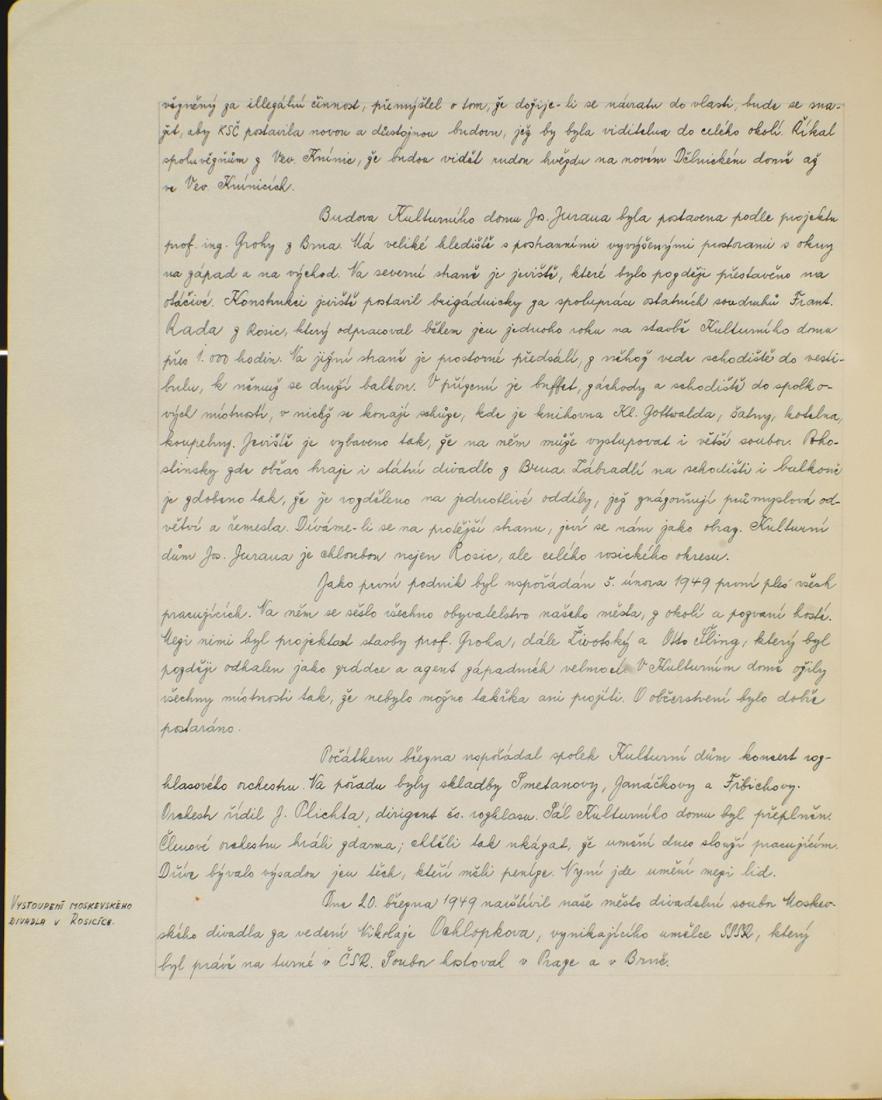 vězněný za illegální činnost, přemýšlel o tom, že dožije-li se návratu do vlasti, bude se sna-
žit, aby KSČ postavila novou a důstojnou budovu, jež by byla viditelna do celého okolí. Říkal
spoluvězňům z Vev. Knínic, že budou vidět rudou hvězdu na novém Dělnickém domě až
ve Vev. Knínicích.
Budova Kulturního domu Jos. Jurana byla postavena podle projektu
prof. ing. Grohy z Brna. Má veliké hlediště s postranními vyvýšenými prostorami s okny
na západ a na východ. Na severní straně je jeviště, které bylo později přestavěno na
otáčivé. Konstrukci jeviště postavil brigádnicky za spolupráce ostatních soudruhů Frant.
Rada z Rosic, který odpracoval během jen jednoho roku na stavbě Kulturního domu
přes 1.000 hodin. Na jižní straně je prostorné předsálí, z něhož vede schodiště do vesti-
bulu, k němuž se druží balkon. V přízemí je buffet, záchody a schodiště do spolko-
vých místností, v nichž se konají schůze, kde je knihovna Kl. Gottwalda, šatny, kotelna,
koupelny. Jeviště je vybaveno tak, že na něm může vystupovat i větší soubor. Poho-
stinsky zde občas hraje i státní divadlo z Brna. Zábradlí na schodišti i balkoně
je zdobeno tak, že je rozděleno na jednotlivé oddíly, jež znázorňují průmyslová od-
větví a řemesla. Díváme-li se na protější stranu, jeví se nám jako obraz. Kulturní
dům Jos. Jurana je chloubou nejen Rosic, ale celého rosického okresu.
Jako první podnik byl uspořádán 5. února 1949 první ples všech
pracujících. Na něm se sešlo všechno obyvatelstvo našeho města, z okolí a pozvaní hosté.
Mezi nimi byl projektant stavby prof. Groha, dále Životský a Otto Šling, který byl
později odhalen jako zrádce a agent západních velmocí. V Kulturním domě ožily
všechny místnosti tak, že nebylo možno takřka ani projíti. O občerstvení bylo dobře
postaráno.
Počátkem března uspořádal spolek Kulturní dům koncert roz-
hlasového orchestru. Na pořadu byly skladby Smetanovy, Janáčkovy a Fibichovy.
Orchestr řídil J. Plichta, dirigent čs. rozhlasu. Sál Kulturního domu byl přeplněn.
Členové orchestru hráli zdarma; chtěli tak ukázat, že umění dnes slouží pracujícím.
Dříve bývalo výsadou jen těch, kteří měli peníze. Nyní jde umění mezi lid.
VYSTOUPENÍ MOSKEVSKÉHO
DIVADLA V ROSICÍCE.
Dne 20. března 1949 navštívil naše město divadelní soubor Moskev-
ského divadla za vedení Nikolaje Ochlopkova, vynikajícího umělce SSSR, který
byl právě na turné v ČSR. Soubor hostoval v Praze a v Brně.